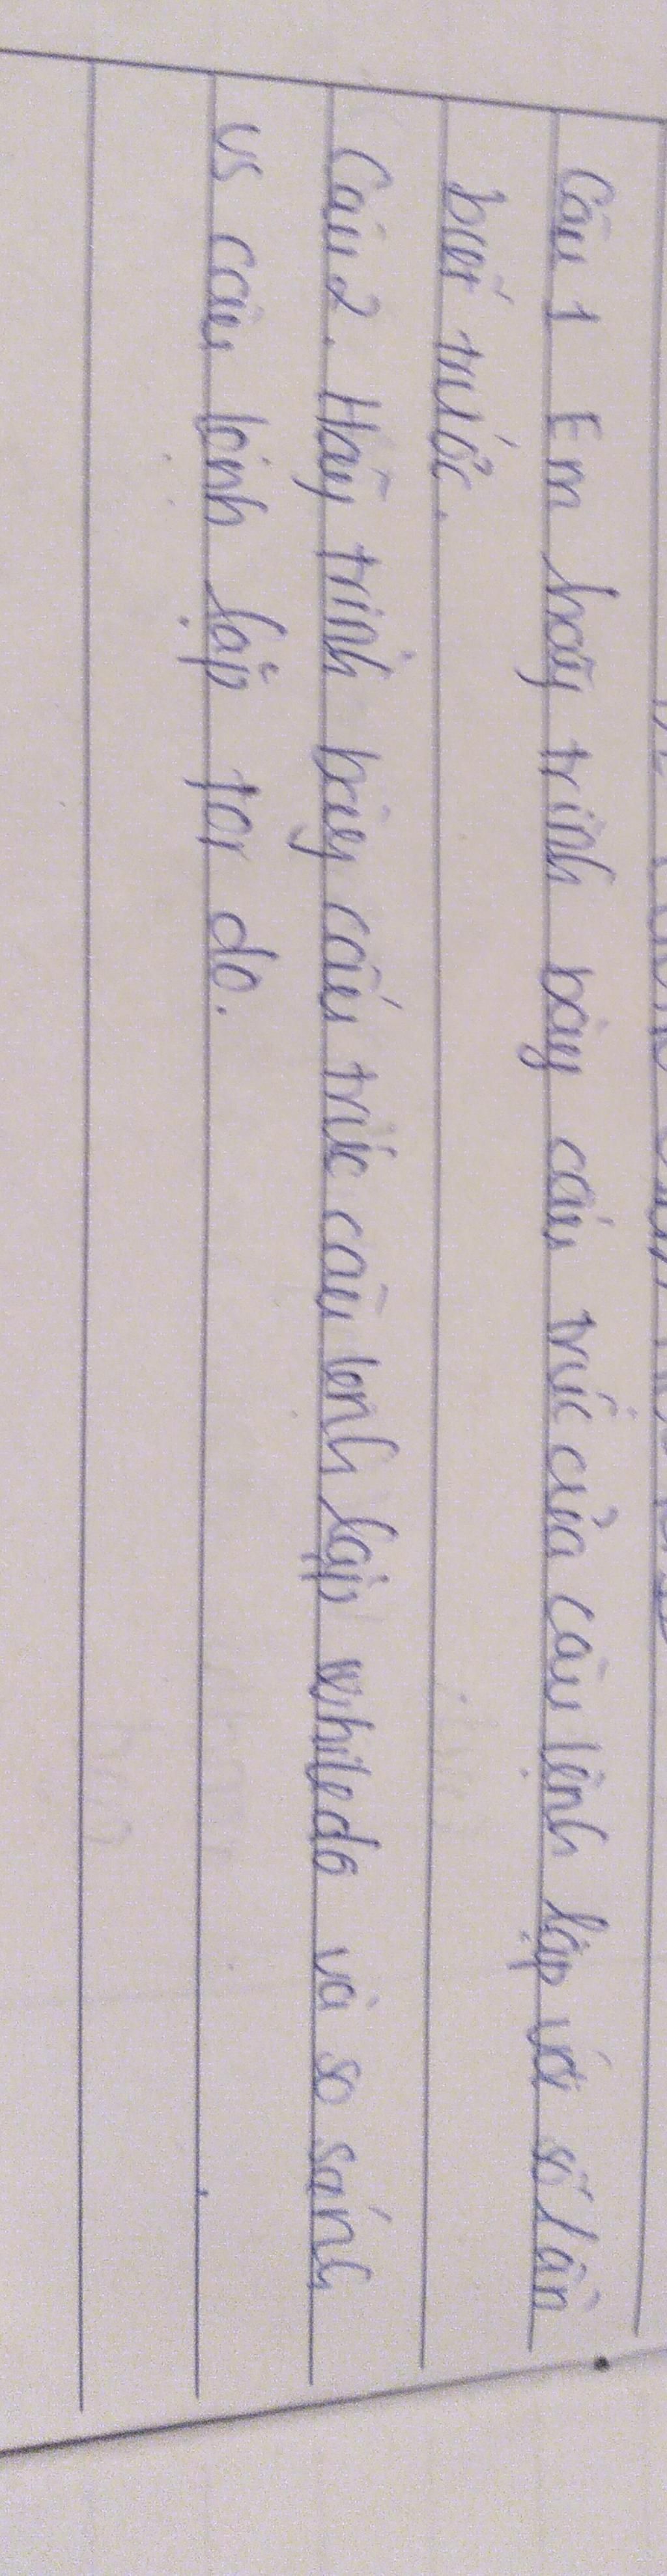 Câu 1 Em hãy trình bày cấu trúc của câu lệnh lặp với số lần
biết trước.
Câu 2. Hãy trình bày cấu trúc câu lệnh lặp whiledo và so sánh
vs câu lệnh lặp for do.